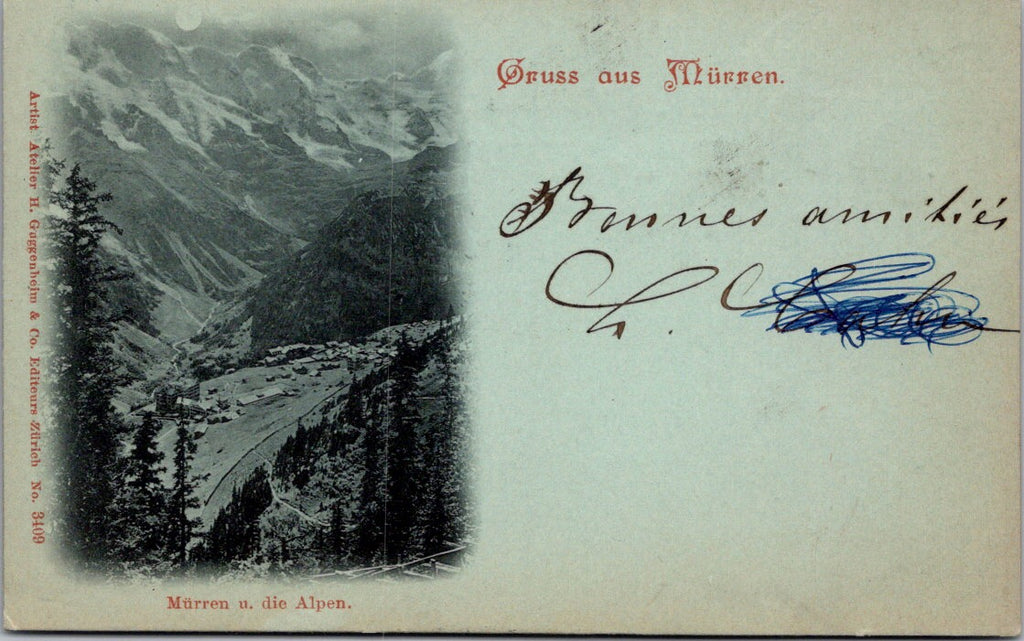 Gruss aus Mürren.
Bonnes amitiés
Artist. Atelier H. Guggenheim & Co. Editeurs Zürich No. 3409
Mürren u. die Alpen.